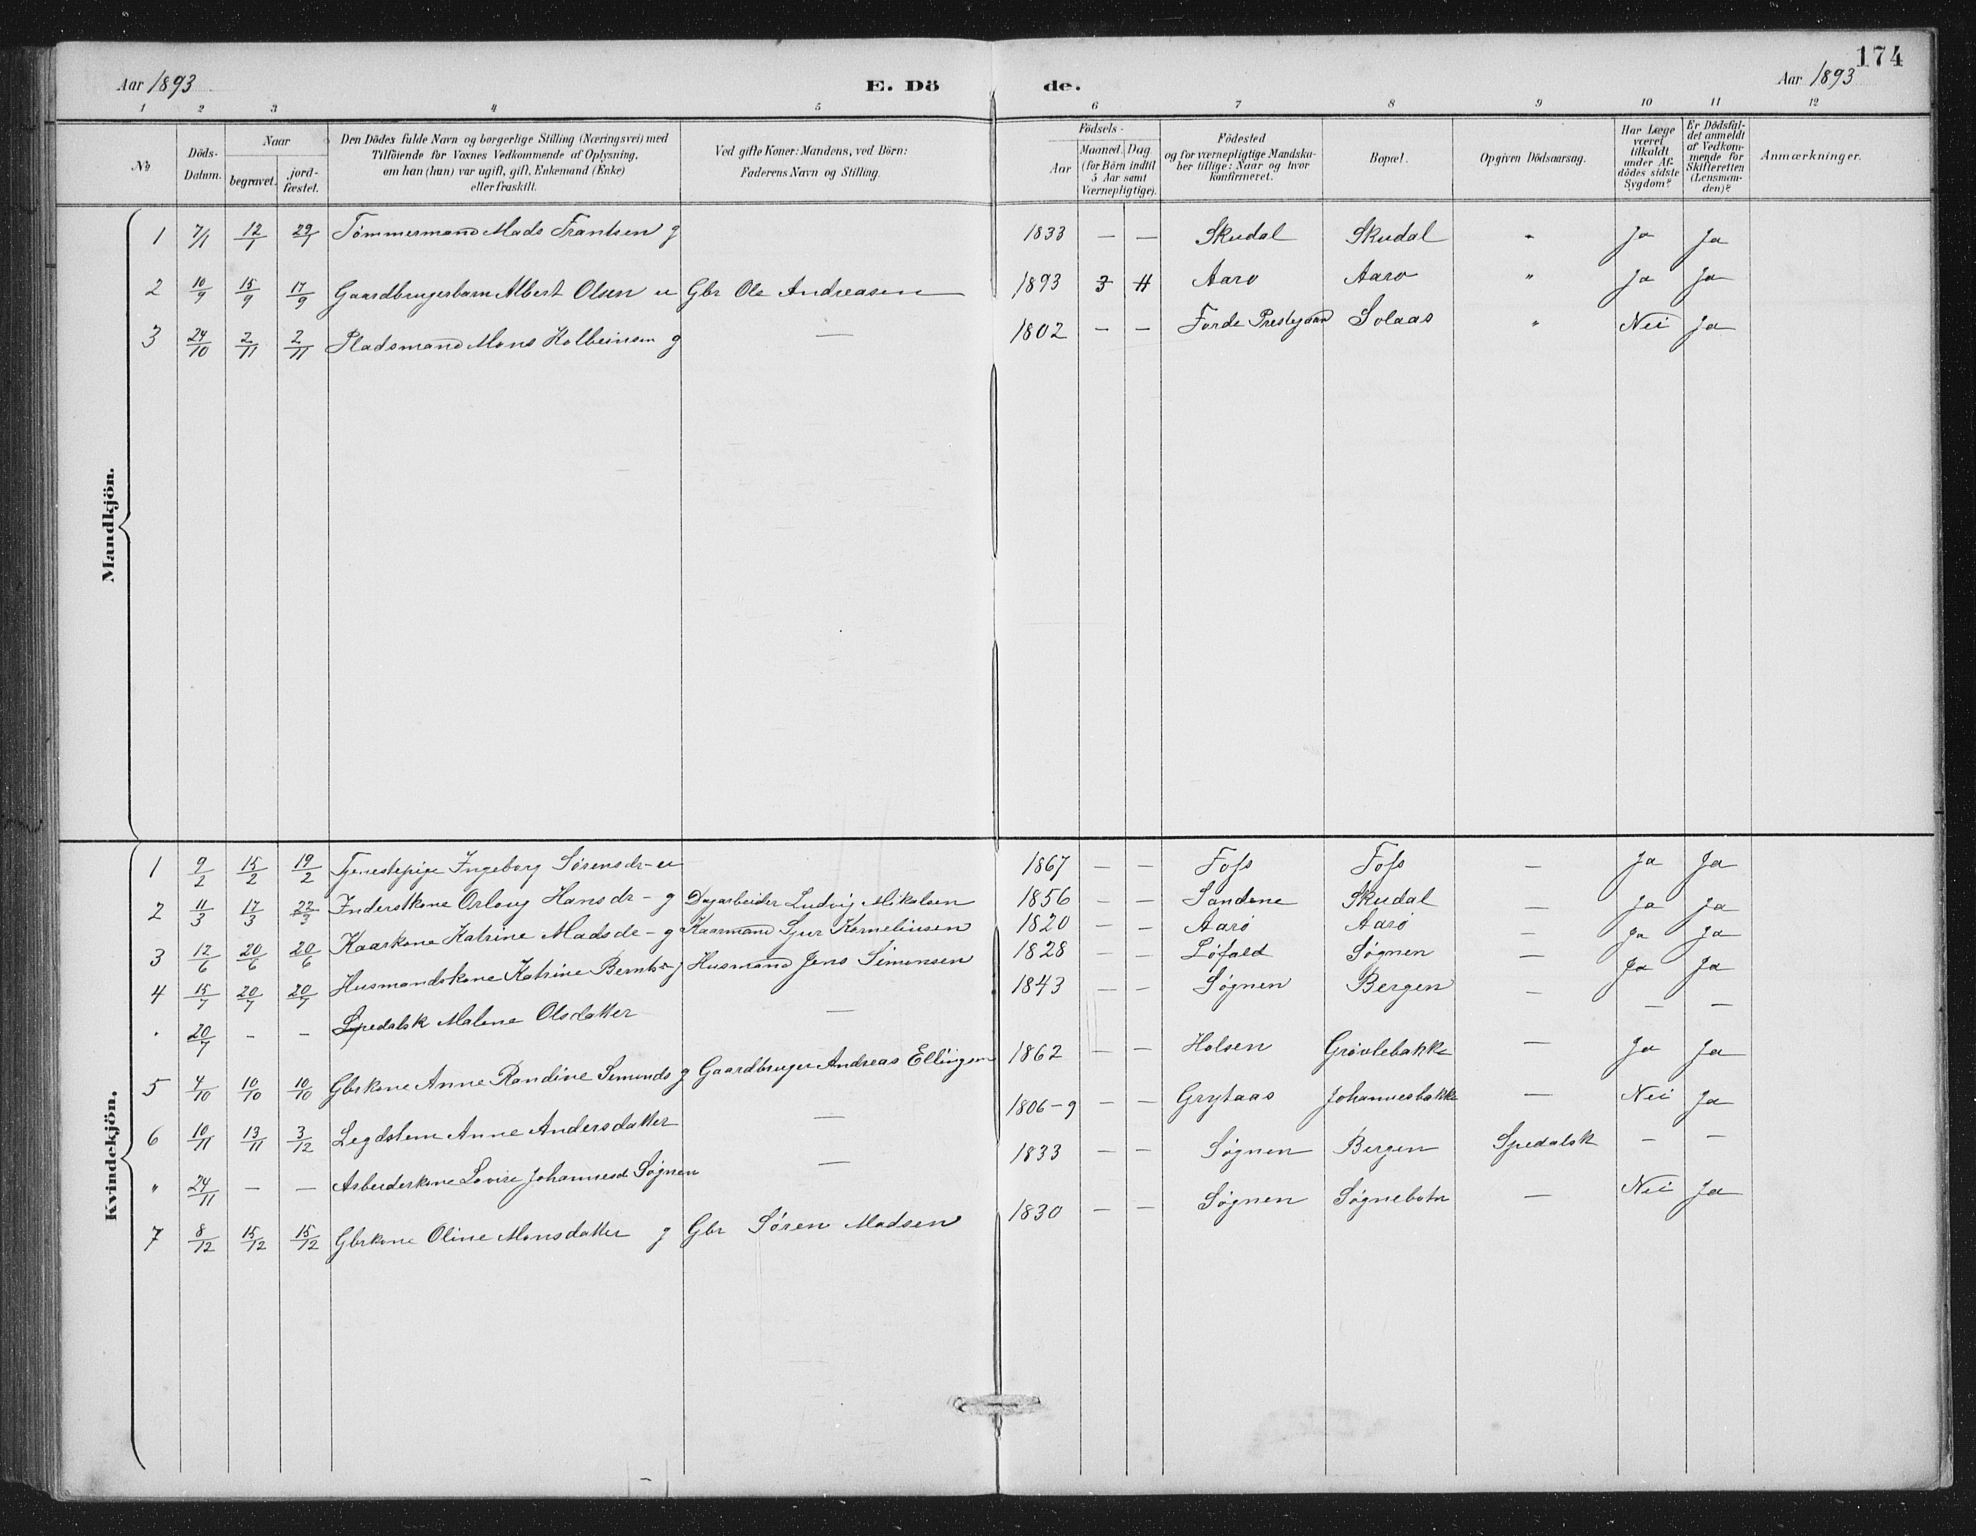 174
Aar 1893 E. Dö de. Aar 1893
1 2 3 4 5 6 7 8 9 10 11 12
No Döds-Datum. Naar begravet. jord-fæstet. Den Dödes fulde Navn og borgerlige Stilling (Næringsvei) med Tilföiende for Voxnes Vedkommende af Oplysning, om han (hun) var ugift, gift, Enkemand (Enke) eller fraskilt. Ved gifte Koner: Mandens, ved Börn: Faderens Navn og Stilling. Födsels- Aar Maaned. Dag (for Börn indtil 5 Aar samt Værnepligtige). Födested og for værnepligtige Mandska-ber tillige: Naar og hvor konfirmeret. Bopæl. Opgiven Dödsaarsag. Har Læge været tilkaldt under Af-dödes sidste Sygdom? Er Dödsfal-det anmeldt af Vedkom-mende for Skifteretten (Lensman-den)? Anmærkninger.
Mandkjön.
1 7/1 12/1 29/1 Tømmermand Mads Frantsen g 1833 — — Skudal Skudal " Ja Ja
2 10/9 15/9 17/9 Gaardbrugerbarn Albert Olsen u Gbr Ole Andreasen 1893 3 4 Aarø Aarø " Ja Ja
3 24/10 2/11 2/11 Pladsmand Mons Kolbeinsen g — 1802 — — Førde Prestegaard Solaas " Nei Ja
Kvindekjön.
1 9/2 15/2 19/2 Tjenestepige Ingeborg Sørensdr - u 1867 — — Fofs Fofs — Ja Ja
2 11/3 17/3 22/3 Inderstkone Orlaug Hansdr - g Dagarbeider Ludvig Mikalsen 1856 — — Sandene Skudal — Ja Ja
3 12/6 20/6 20/6 Kaarkone Katrine Madsdr - g Kaarmand Sjur Korneliusen 1820 — — Aarø Aarø — Ja Ja
4 15/7 20/7 20/7 Husmandskone Katrine g Husmand Jens Simonsen 1828 — — Løfald Søgnen — Ja Ja
" 20/7 — — Spedalsk Malene Olsdatter — 1843 — — Søgnen Bergen — — —
5 4/10 10/10 10/10 Gbrkone Anne Randine Simonds g Gaardbruger Andreas Ellingsen 1862 — — Holsen Grøvlebakke — Ja Ja
6 10/11 13/11 3/12 Legdslem Anne Andersdatter — 1806-9 — — Grytaas Johannesbakke — Nei Ja
" 24/11 — — Arbeiderkone Lovise Johannesd Søgnen — 1833 — — Søgnen Bergen Spedalsk — —
7 8/12 15/12 15/12 Gbrkone Oline Monsdatter g Gbr Søren Madsen 1830 — — Søgnen Søgnebotn — Nei Ja